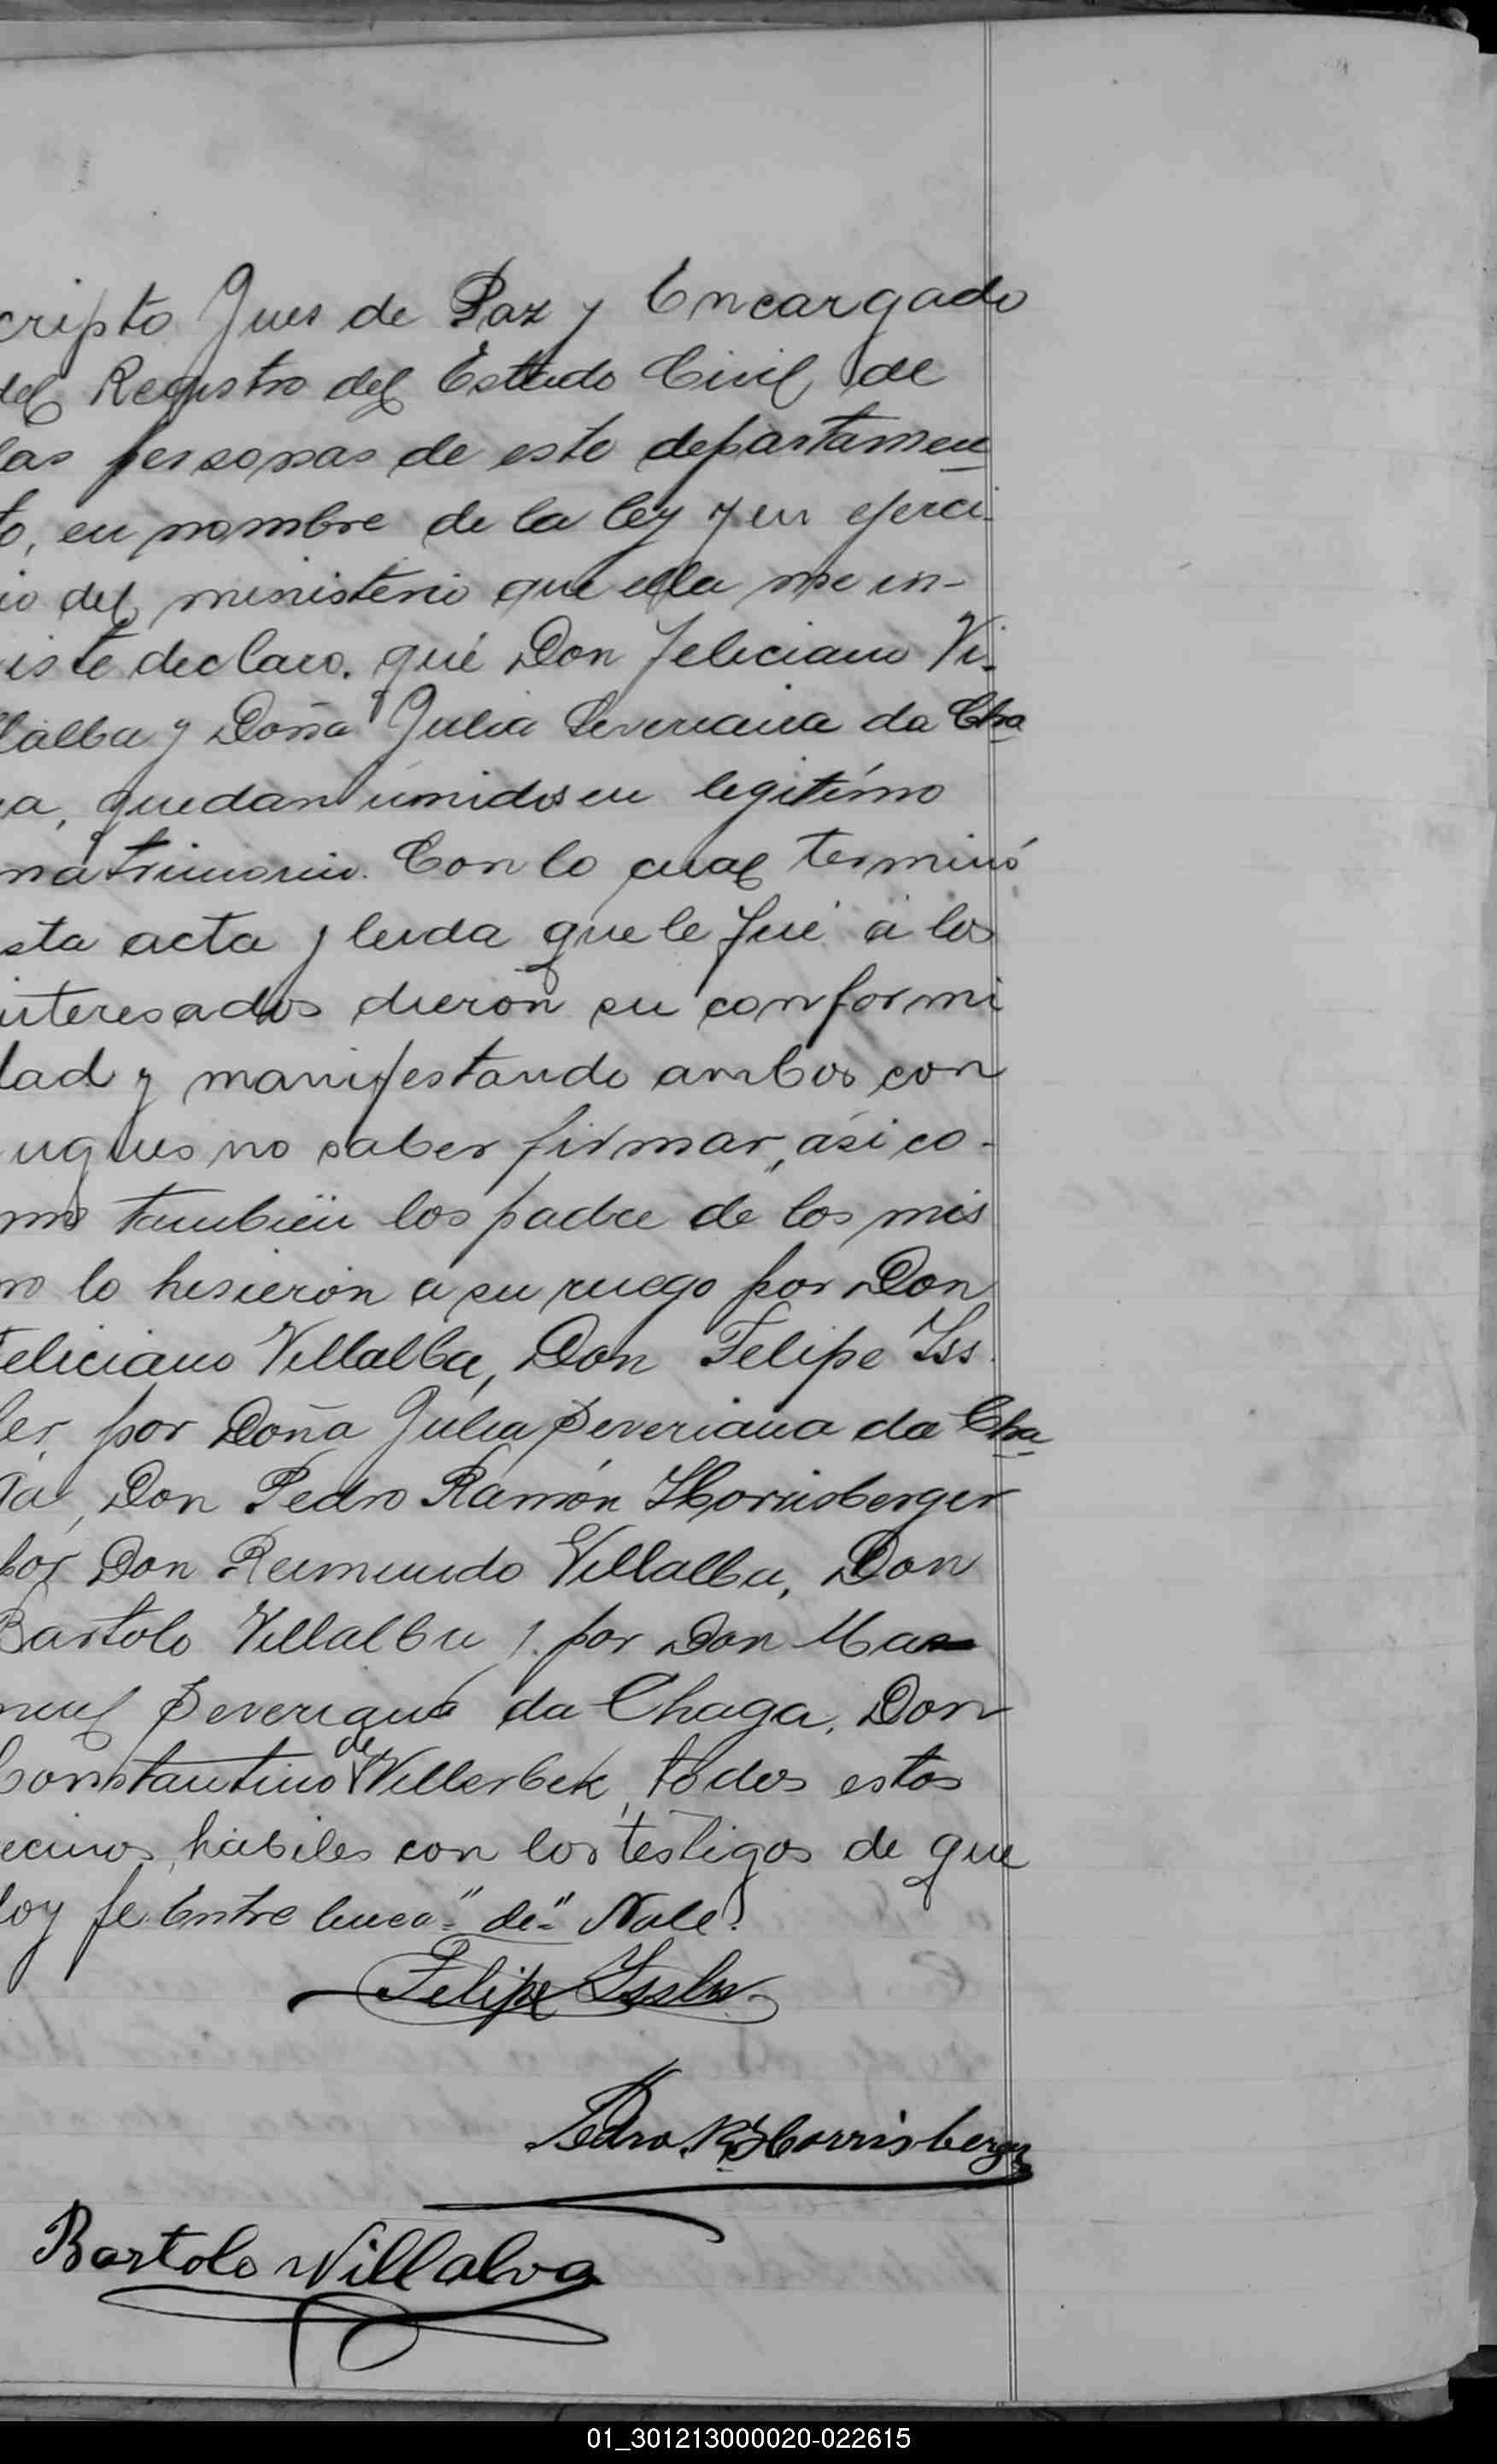 cripto Jues de Paz y Encargado
del Registro del Estado Civil de
las personas de este departamen
to, en nombre de la ley y en ejerci-
io del ministerio que ella me in-
iste declaro. qué Don Feliciano Vi-
llalba y Doña Julia Severiana da Cha
ga, quedan unidos en legitimo
matrimonio. Con lo cual terminó
sta acta y leida que le fué á los
interesados dieron su conformi
dad y manifestando ambos con
yugues no saber firmar, ási co-
mo tambien los padre de los mis
mo lo hisierón a su ruego por Don
Feliciano Villalba, Don Felipe Iss
ler, por Doña Julia Severiana da Cha
ga, Don Pedro Ramón Horrisberger
por Don Reimundo Villalba, Don
Bartolo Villalba y. por Don Ma
nuel Severiano da Chaga, Don
Constantino de Willerbek, todos estos
vecinos, hábiles con los testigos de que
doy fe. Entre linea "de" Vale.
Felipe Issler
Pedro R. Horrisberger
Bartolo Villalva
01_301213000020-022615